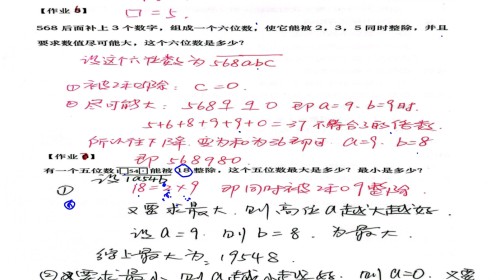 【作业8】 □=5.
568后面补上3个数字，组成一个六位数，使它能被2，3，5同时整除，并且
要求数值尽可能大，这个六位数是多少？
设这个六位数为 568abc
① 被2和5整除： c=0.
② 尽可能大： 568 9 9 0 即 a=9. b=9时.
5+6+8+9+9+0=37 不符合3的倍数.
变为和为36即可. a=9. b=8
【作业9】 即 568980.
有一个五位数 □54□ 能被18整除，这个五位数最大是多少？最小是多少？
设 1a54b
① 18=2×9 即同时被2和9整除
又要求最大. 则高位a越大越好.
设 a=9. 则 b=8. 为最大.
综上最大为: 19548.
② 又要求最小. 则a越小越好. 则 a=0. 又要